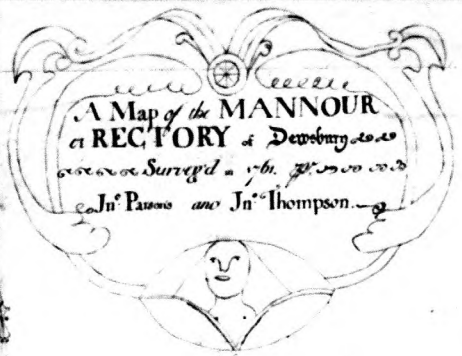 A Map of the MANNOUR
or RECTORY of Dewsbury
Survey'd in 1761. By
Jn.º Parsons and Jn.º Thompson.